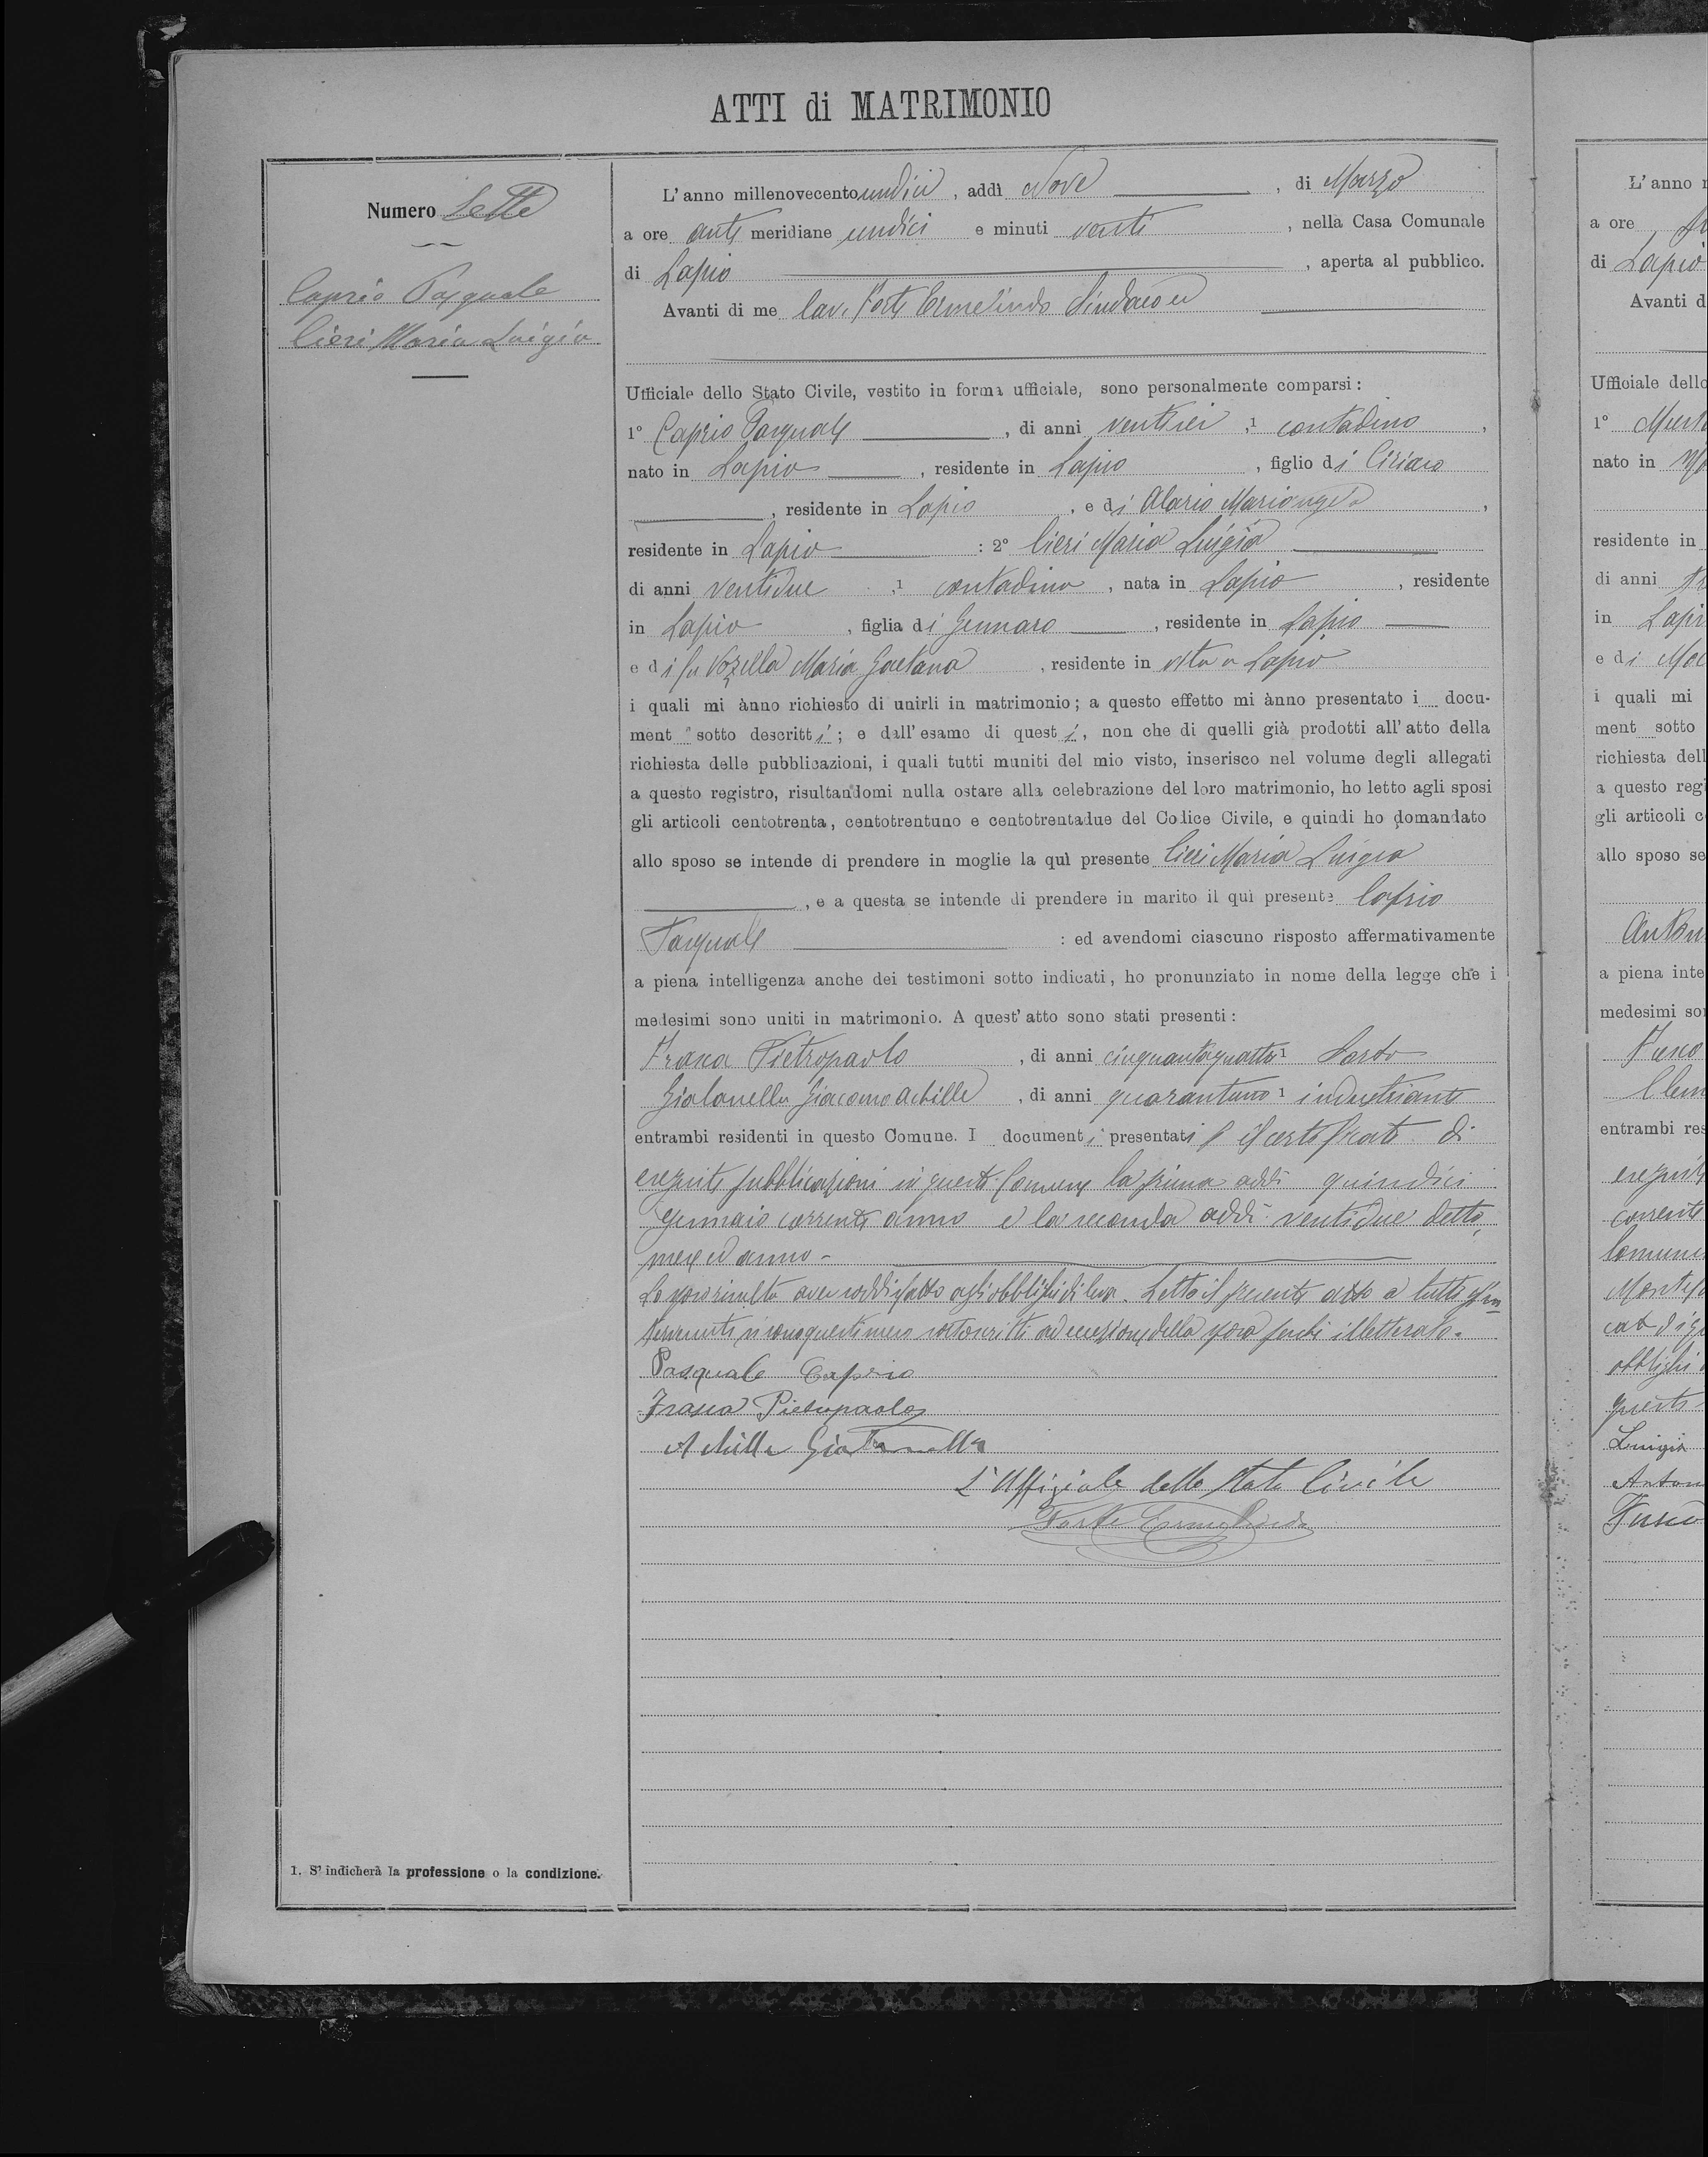 ATTI di MATRIMONIO
Numero Sette
Caprio Pasquale
Cieri Maria Luigia
1. S' indicherà la professione o la condizione.
L' anno millenovecento undici, addì Nove, di Marzo
a ore anti meridiane undici e minuti venti, nella Casa Comunale
di Lapio, aperta al pubblico.
Avanti di me Cav. Forte Ermelindo Sindaco ed
Ufficiale dello Stato Civile, vestito in forma ufficiale, sono personalmente comparsi:
1º Caprio Pasquale, di anni ventisei, 1 contadino,
nato in Lapio, residente in Lapio, figlio di Ciriaco
, residente in Lapio, e di Alario Mariangela,
residente in Lapio : 2º Cieri Maria Luigia
di anni ventidue, 1 contadina, nata in Lapio, residente
in Lapio, figlia di Gennaro, residente in Lapio
e di fu Vozella Maria Gaetana, residente in vita a Lapio
i quali mi ànno richiesto di unirli in matrimonio; a questo effetto mi ànno presentato i docu-
ment i sotto descritti; e dall' esame di questi, non che di quelli già prodotti all' atto della
richiesta delle pubblicazioni, i quali tutti muniti del mio visto, inserisco nel volume degli allegati
a questo registro, risultandomi nulla ostare alla celebrazione del loro matrimonio, ho letto agli sposi
gli articoli centotrenta, centotrentuno e centotrentadue del Codice Civile, e quindi ho domandato
allo sposo se intende di prendere in moglie la quì presente Cieri Maria Luigia
, e a questa se intende di prendere in marito il quì presente Caprio
Pasquale : ed avendomi ciascuno risposto affermativamente
a piena intelligenza anche dei testimoni sotto indicati, ho pronunziato in nome della legge che i
medesimi sono uniti in matrimonio. A quest' atto sono stati presenti:
Frasca Pietropaolo, di anni cinquantaquattro 1 Sarto
Giatanella Giacomo Achille, di anni quarantuno 1 industriante
entrambi residenti in questo Comune. I documenti presentati il certificato di
eseguite pubblicazioni in questo Comune la prima addì quindici
Gennaio corrente anno e la seconda addì ventidue detto
mese ed anno -
Lo sposo risulta aver soddisfatto agli obblighi di leva. Letto il presente atto a tutti gl'in
tervenuti si sono questi meco sottoscritti ad eccezione della sposa perchè illetterata.
Pasquale Caprio
Frasca Pietropaolo
Achille
L'Uffiziale dello Stato Civile
Forte Ermelindo
L' anno
a ore
di Lapio
Avanti d
Ufficiale dello
1º
nato in
residente in
di anni
in Lapi
e di
i quali mi
ment sotto
richiesta dell
a questo regi
gli articoli c
allo sposo se
a piena inte
medesimi so
Fusco
Clem
entrambi res
eseguit
corrente
Comune
obblighi
questi
Luigia
Anton
Fusco